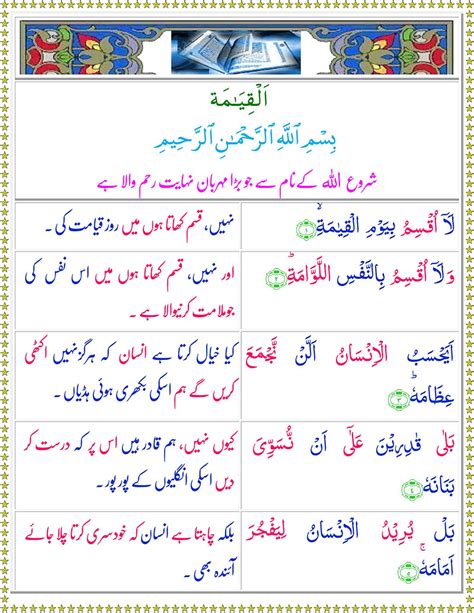 اَلْقِيَـٰمَة
بِسْمِ ٱللَّهِ ٱلرَّحْمَـٰنِ ٱلرَّحِيمِ
شروع اللہ کے نام سے جو بڑا مہربان نہایت رحم والا ہے
لَاۤ اُقْسِمُ بِيَوْمِ الْقِيٰمَةِۙ ﴿۱﴾
نہیں، قسم کھاتا ہوں میں روز قیامت کی ۔
وَلَاۤ اُقْسِمُ بِالنَّفْسِ اللَّوَّامَةِؕ ﴿۲﴾
اور نہیں، قسم کھاتا ہوں میں اس نفس کی
جو ملامت کرنیوالا ہے ۔
اَيَحْسَبُ الْاِنْسَانُ اَلَّنْ نَّجْمَعَ
عِظَامَهٗؕ ﴿۳﴾
کیا خیال کرتا ہے انسان کہ ہرگز نہیں اکٹھی
کریں گے ہم اسکی بکھری ہوئی ہڈیاں ۔
بَلٰى قٰدِرِيْنَ عَلٰٓى اَنْ نُّسَوِّىَ
بَنَانَهٗ ﴿۴﴾
کیوں نہیں، ہم قادر ہیں اس پر کہ درست کر
دیں اسکی انگلیوں کے پور پور ۔
بَلْ يُرِيْدُ الْاِنْسَانُ لِيَفْجُرَ
اَمَامَهٗۚ ﴿۵﴾
بلکہ چاہتا ہے انسان کہ خودسری کرتا چلا جائے
آئندہ بھی ۔